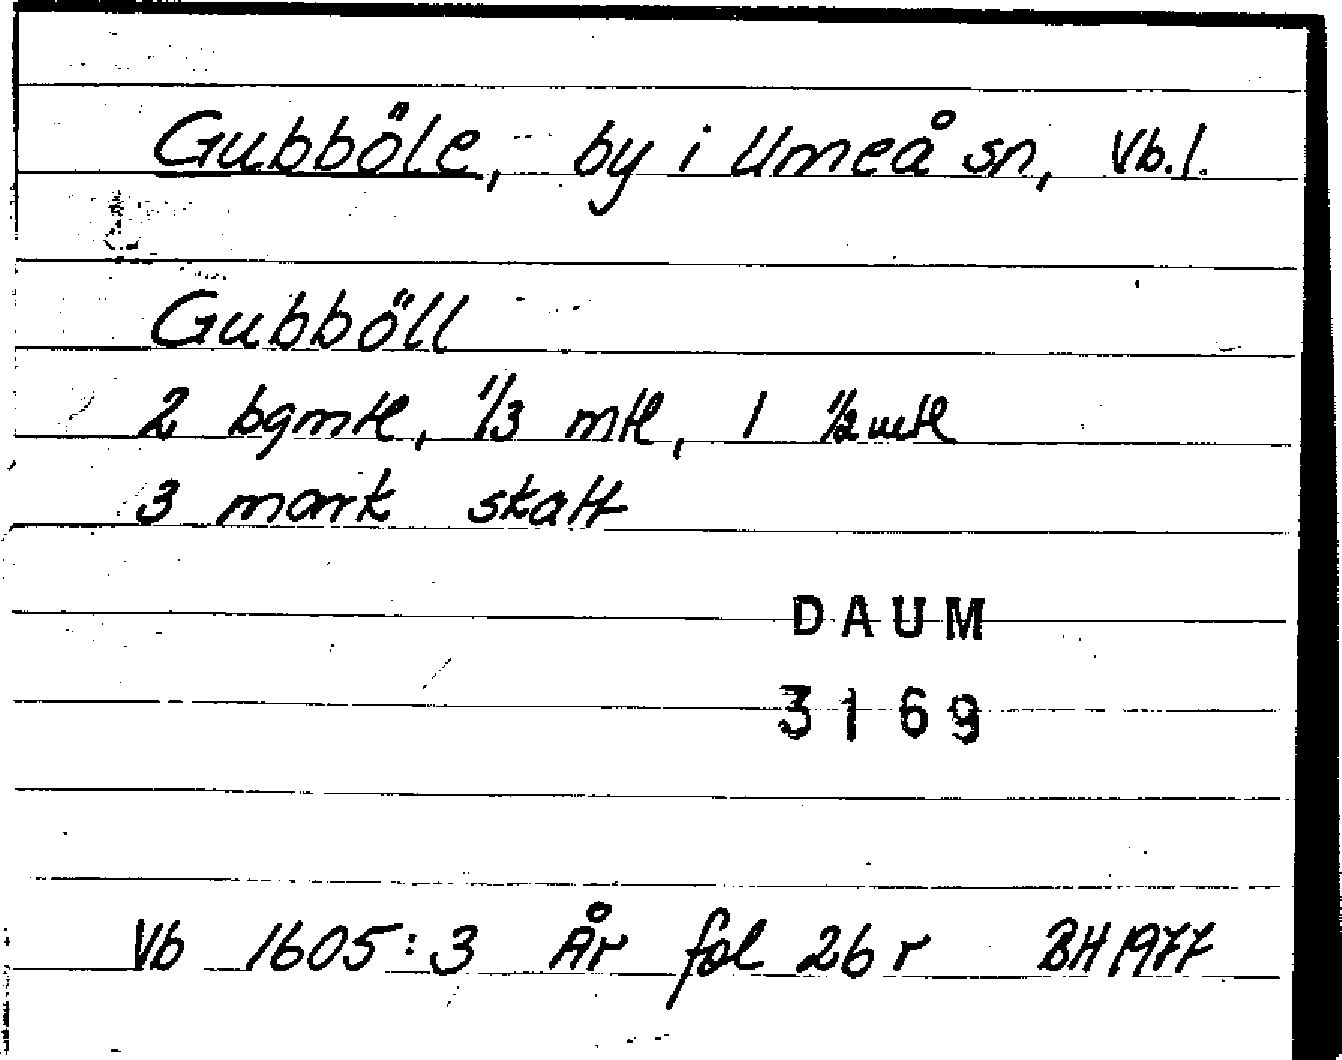 Gubböle, by i Umeå sn, Vb.l.
Gubböll
2 bgmtl, 1/3 mtl, 1 1/2 mtl
3 mark skatt
DAUM
3169
Vb 1605:3 År fol 26 r BH 1977